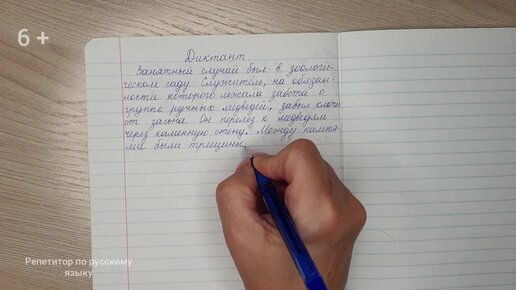 6 +
Диктант.
Занятный случай был в зоологи-
ческом саду. Служитель, на обязан-
ности которого лежала забота о
группе ручных медведей, забыл ключ
от загона. Он перелез к медведям
через каменную стену. Между камня-
ми были трещины,
Репетитор по русскому
языку